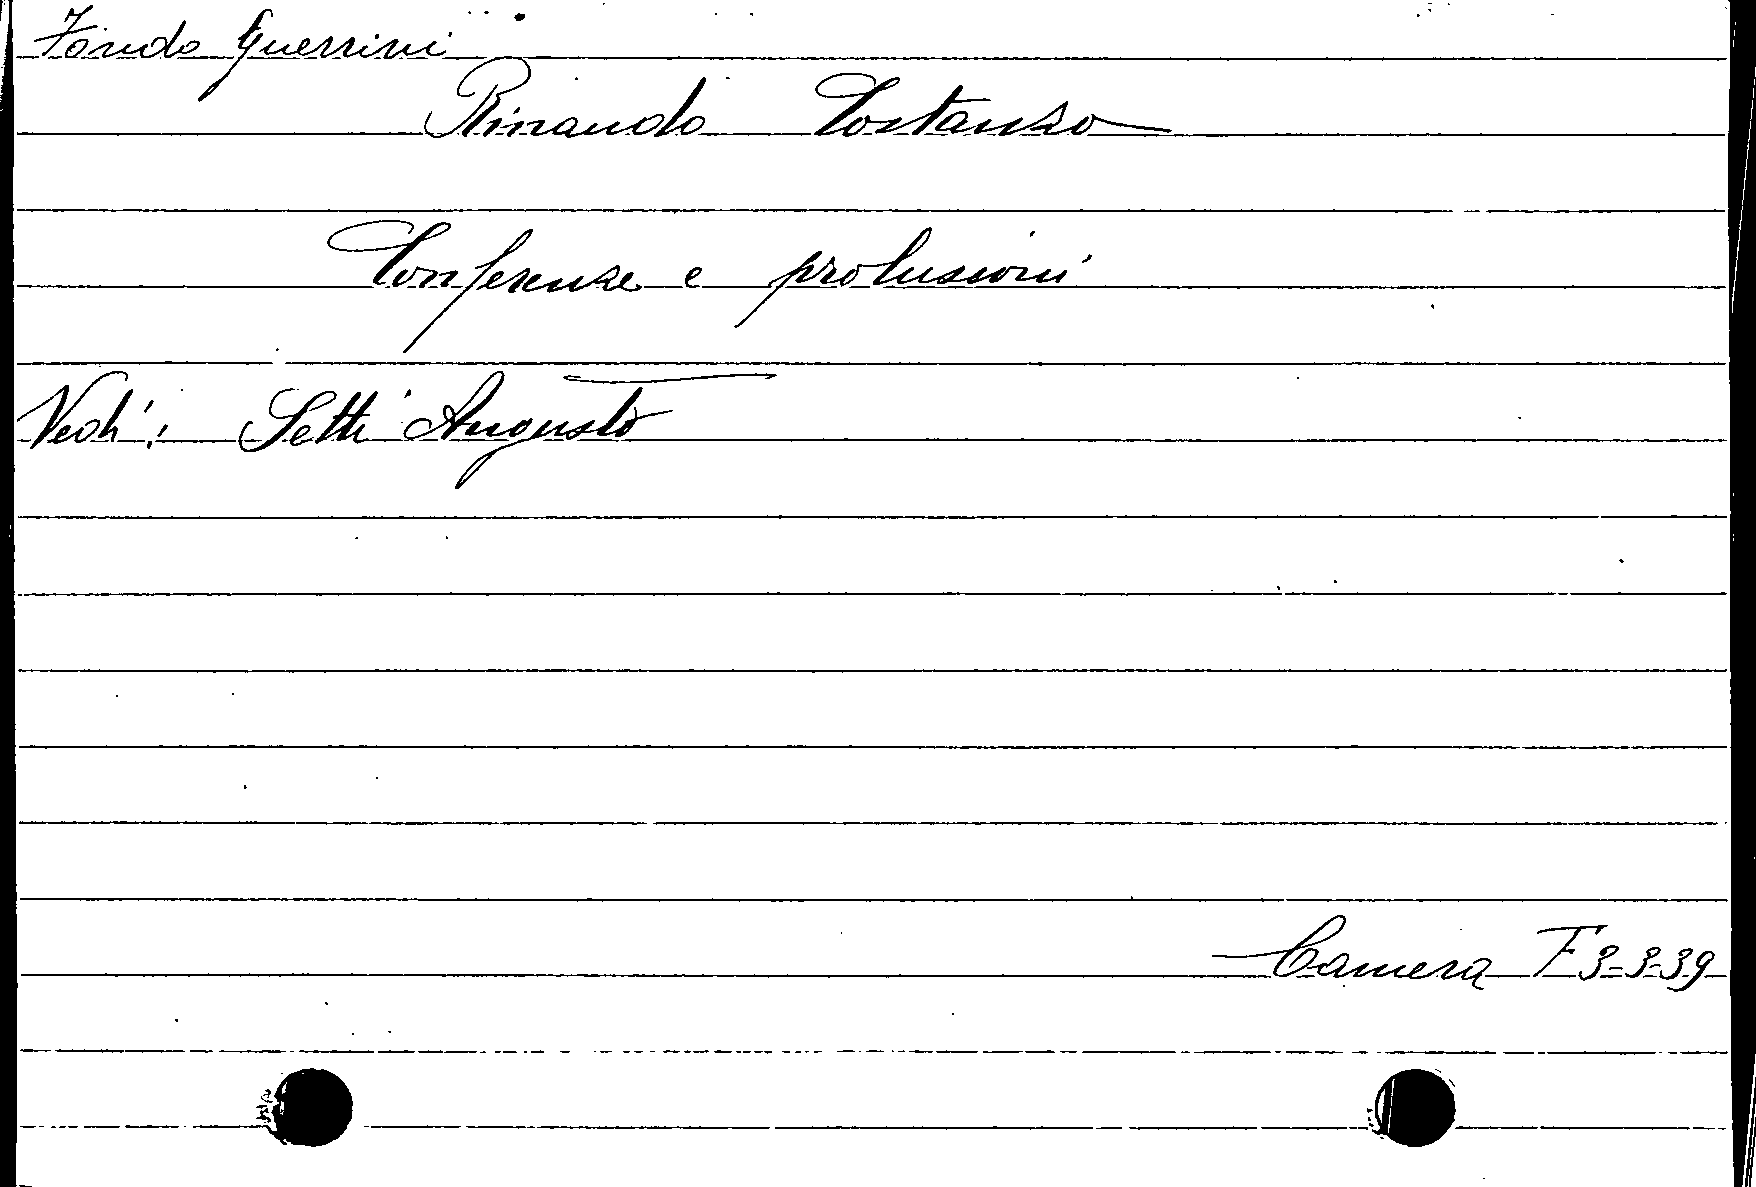 Fondo Guerrini
Rinaudo Costanzo
Conferenze e prolusioni
Vedi: Setti Augusto
Camera F 3-3-39